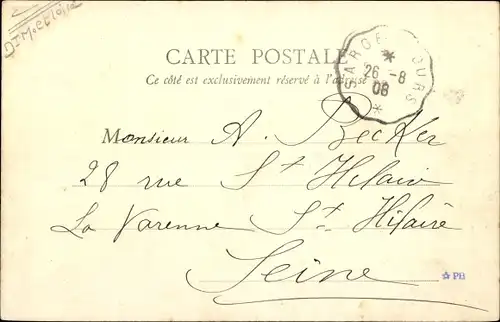 CARTE POSTALE
Ce côté est exclusivement réservé à l'adresse
SARGÉ TOURS
26 -8
08
Monsieur A. Becker
28 rue St Hilaire
La Varenne St. Hilaire
Seine
PB